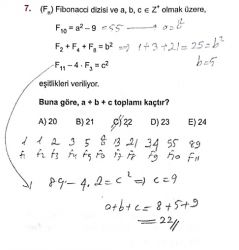 7. (Fₙ) Fibonacci dizisi ve a, b, c ∈ Z⁺ olmak üzere,
F₁₀ = a² – 9 = 55 → a = 8
F₂ + F₄ + F₈ = b² ⇒ 1+3+21 = 25 = b²
b=5
F₁₁ – 4 · F₃ = c²
eşitlikleri veriliyor.
Buna göre, a + b + c toplamı kaçtır?
A) 20 B) 21 C) 22 D) 23 E) 24
1 1 2 3 5 8 13 21 34 55 89
F₁ F₂ F₃ F₄ F₅ F₆ F₇ F₈ F₉ F₁₀ F₁₁
89 – 4.2 = c² ⇒ c = 9
a+b+c = 8+5+9
= 22